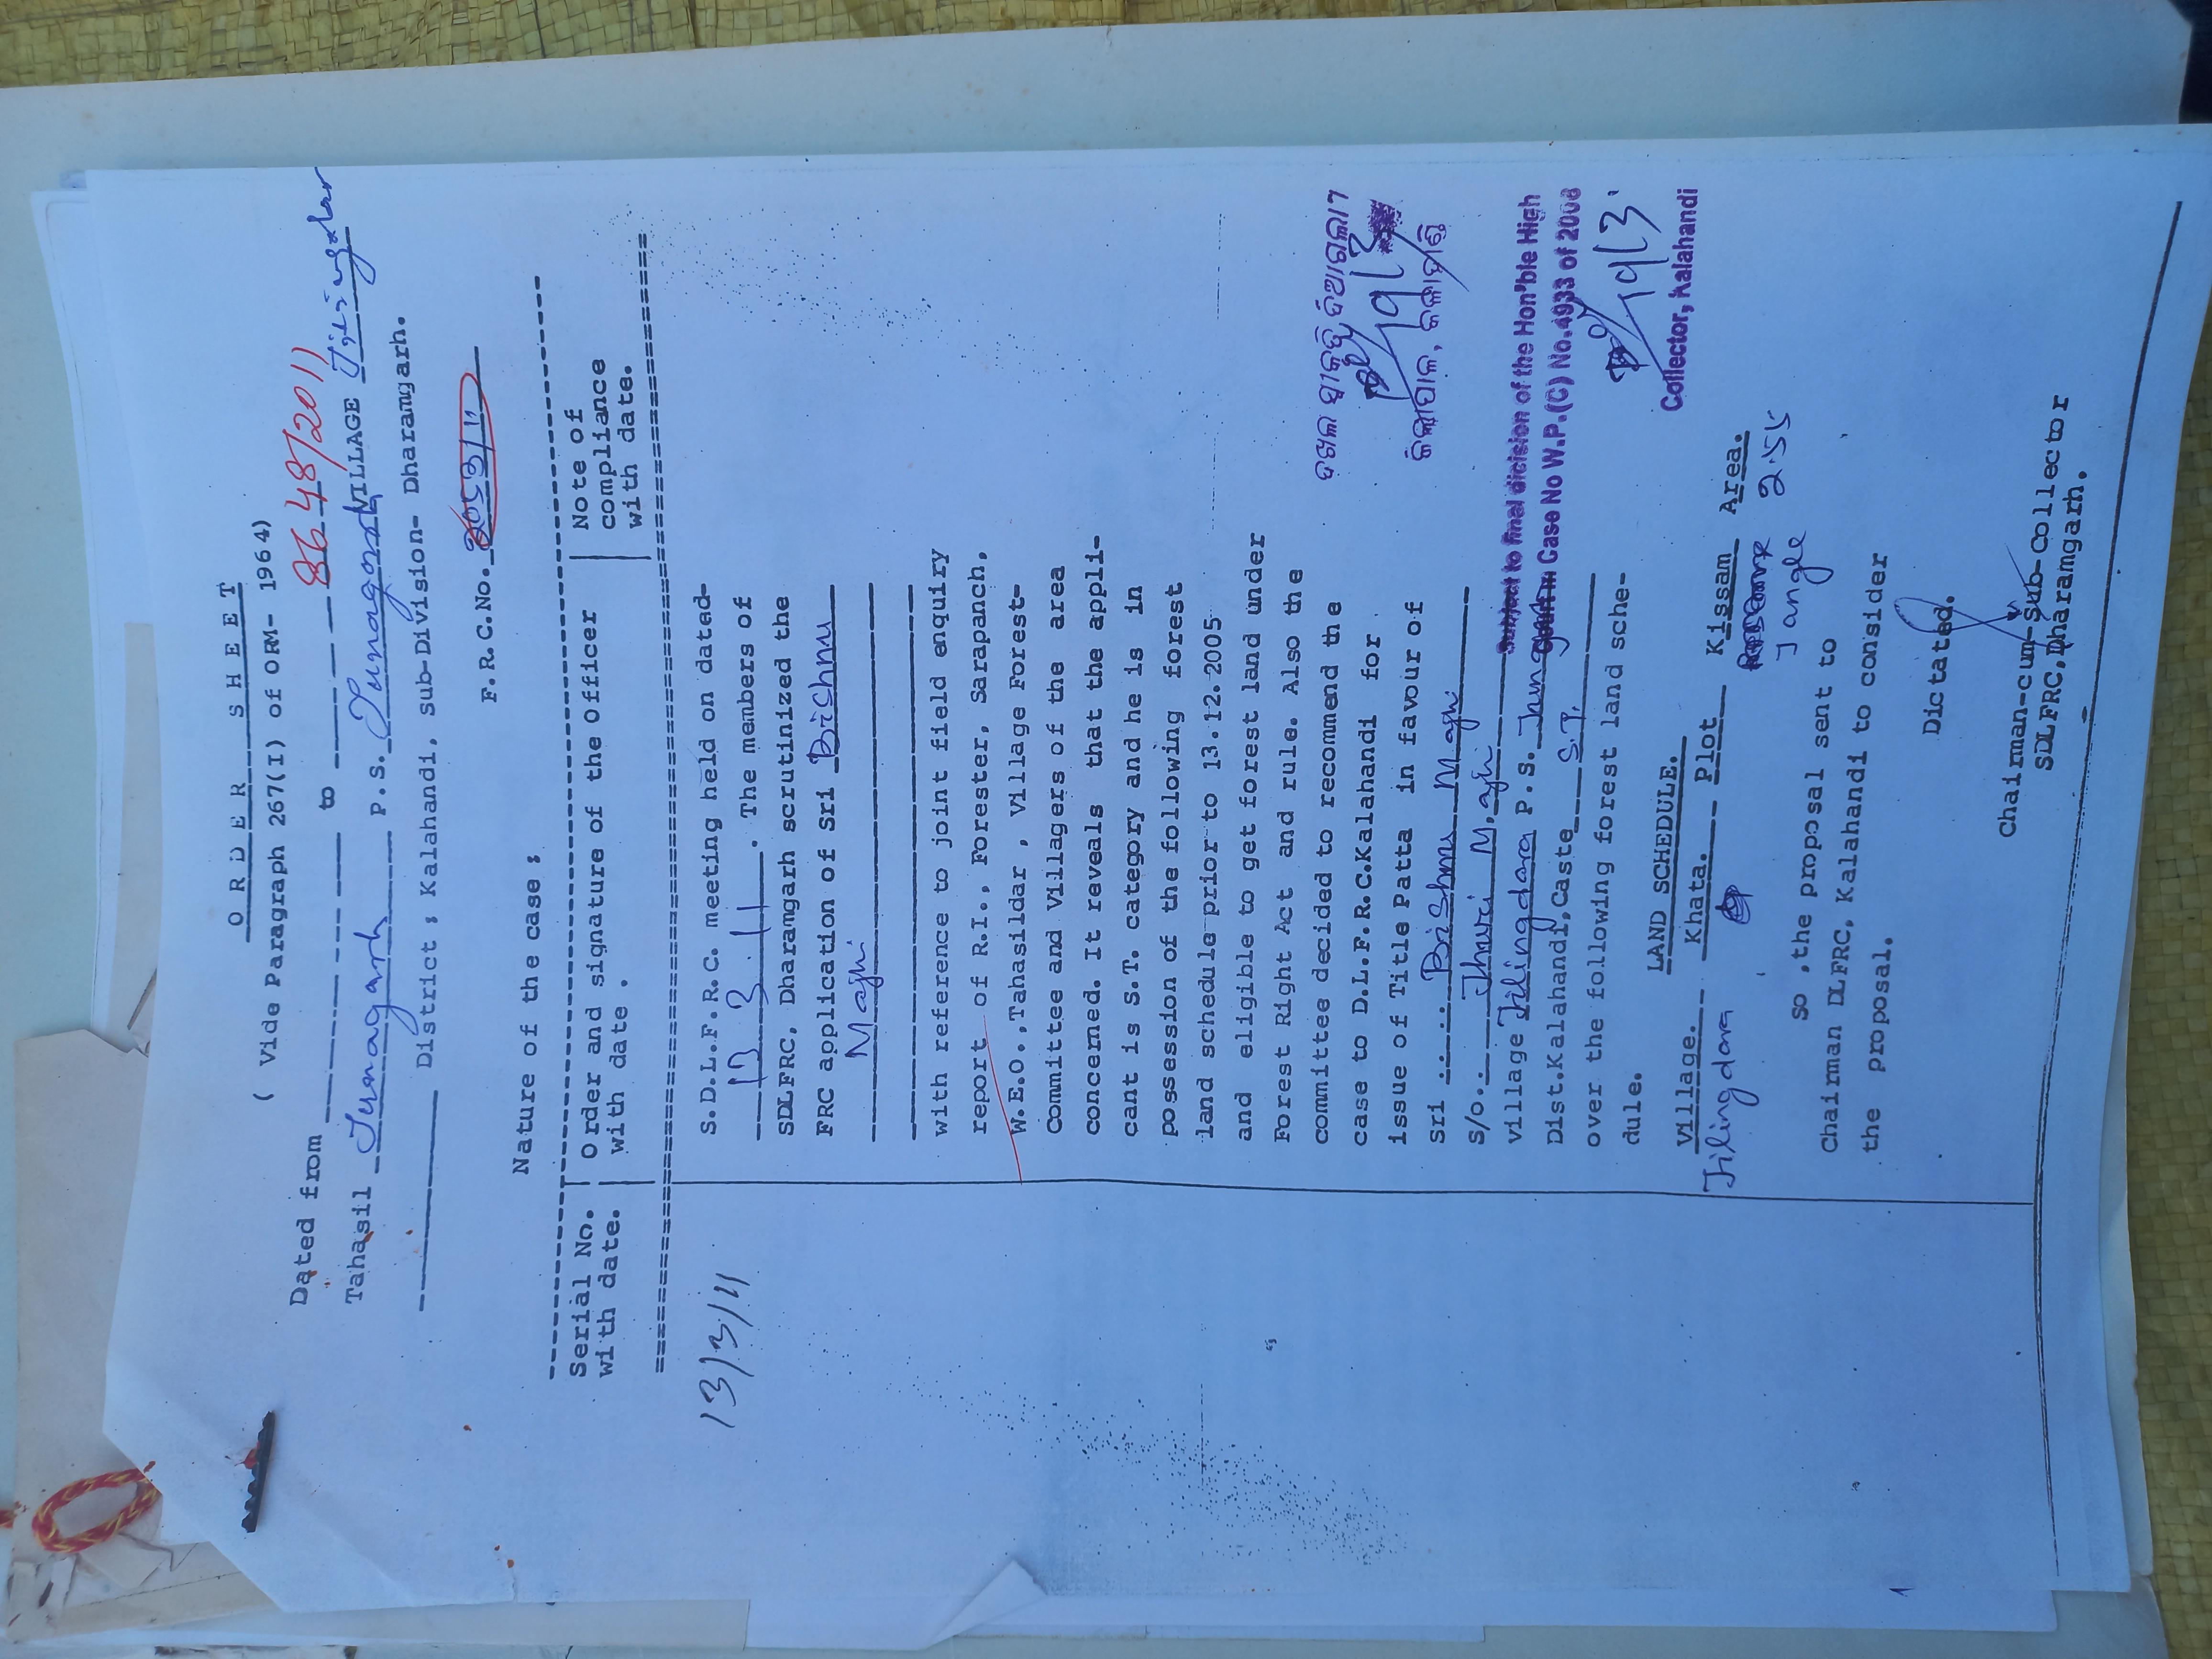 O R D E R   S H E E T
( Vide Paragraph 267(I) of ORM- 1964)
Dated from ________ to ________ 8648/2011
Tahasil Junagarh P.S. Junagarh VILLAGE
District ; Kalahandi, sub-Division- Dharamgarh.
F.R.C.No. 2053/11
Nature of the case ;
Serial No. | Order and signature of the Officer | Note of
with date. | with date . | compliance
with date.
13/3/11
S.D.L.F.R.C. meeting held on dated-
12.3.11. The members of
SDLFRC, Dharamgarh scrutinized the
FRC application of Sri Brishnu
Majhi
with reference to joint field enquiry
report of R.I., Forester, Sarapanch,
W.E.O.,Tahasildar , Village Forest-
committee and Villagers of the area
concemed. It reveals that the appli-
cant is S.T. category and he is in
possession of the following forest
land schedule prior to 13.12.2005
and eligible to get forest land under
Forest Right Act and rule. Also the
committee decided to recommend the
case to D.L.F.R.C.Kalahandi for
issue of Title Patta in favour of
Sri Brishnu Majhi
S/o. Jhuri Majhi
village Jilingdara P.S. Junagarh
Dist.Kalahandi,Caste S.T.
over the following forest land sche-
dule.
LAND SCHEDULE.
Village. Khata. Plot Kissam Area.
Jilingdara Jangle 2.55
So ,the proposal sent to
Chairman DLFRC, Kalahandi to consider
the proposal.
Dictated.
Chairman-cum-Sub-Collector
SDLFRC,Dharamgarh.
ଜିଲ୍ଲାପାଳ, କଳାହାଣ୍ଡି
Subject to final dicision of the Hon'ble High
Court in Case No W.P.(C) No.4933 of 2008
Collector, Kalahandi